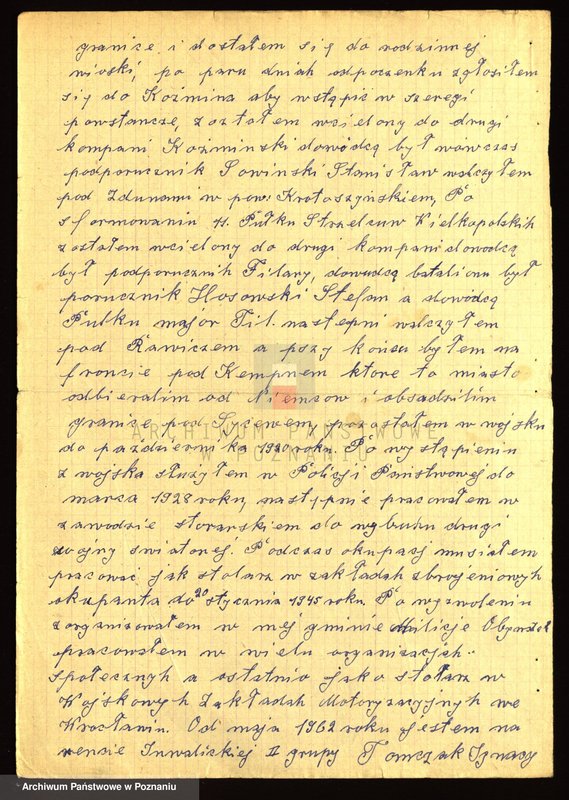 granice i dostałem się do rodzinnej
wioski, po paru dniach odpoczenku zgłosiłem
się do Koźmina aby wstąpić w szeregi
powstańcze, zoztałem wcielony do drugi
kompani Kozminski dowódcą był wówczas
podporucznik Sowinski Stanisław walczyłem
pod Zdunami w pow. Krotoszyńskiem, Po
sformowaniu 11. Pułku Strzelcuw Wielkopolskich
zostałem wcielony do drugi kompani dowodcą
był podporucznik Filary, dowudcą batalionu był
porucznik Stefan a dowódcą
Pułku major Til. następni walczyłem
pod Rawiczem a pszy końcu byłem na
froncie pod Kempnem ktore to miasto
odbieralim od Niemcow i obsadzilim
granice pod Sycewem, pozostałem w wojsku
do pazdziernika 1920 roku. Po wystąpieniu
z wojska służyłem w Policji Państwowej do
marca 1928 roku, następnie pracowałem w
zawodzie stolarskiem do wybuku drugi
wojny swiatonej. Podczas okupacji musiałem
pracować jak stolarz w zakładach zbrojeniowych
okupanta do 20 stycznia 1945 roku Po wyzwoleniu
zorganizowałem w mej gminie Milicje
pracowałem w wielu organizacjach
społecznych a ostatnio jako stolarz w
Wojskowych Zakładach Motoryzacyjnych we
Wrocławiu. Od maja 1962 roku jestem na
rencie Inwalickiej II grupy Tomczak Ignacy
ARCHIWUM PAŃSTWOWE
W POZNANIU
Archiwum Państwowe w Poznaniu